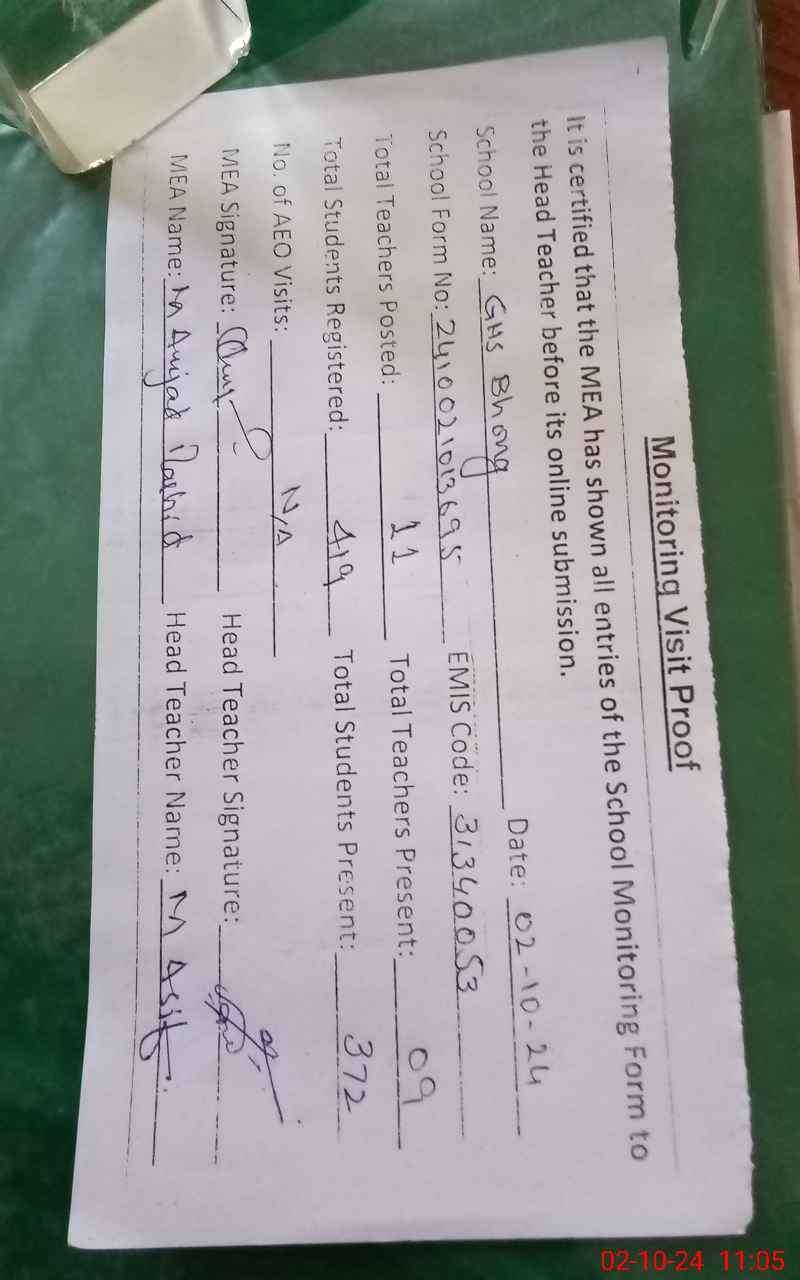 Monitoring Visit Proof
It is certified that the MEA has shown all entries of the School Monitoring Form to
the Head Teacher before its online submission.
School Name: GHS Bhong Date: 02-10-24
School Form No: 2410021013695 EMIS Code: 31340053
Total Teachers Posted: 11 Total Teachers Present: 09
Total Students Registered: 419 Total Students Present: 372
No. of AEO Visits: N/A
MEA Signature: Head Teacher Signature:
MEA Name: M Amjad Rashid Head Teacher Name: M Asif
02-10-24 11:05